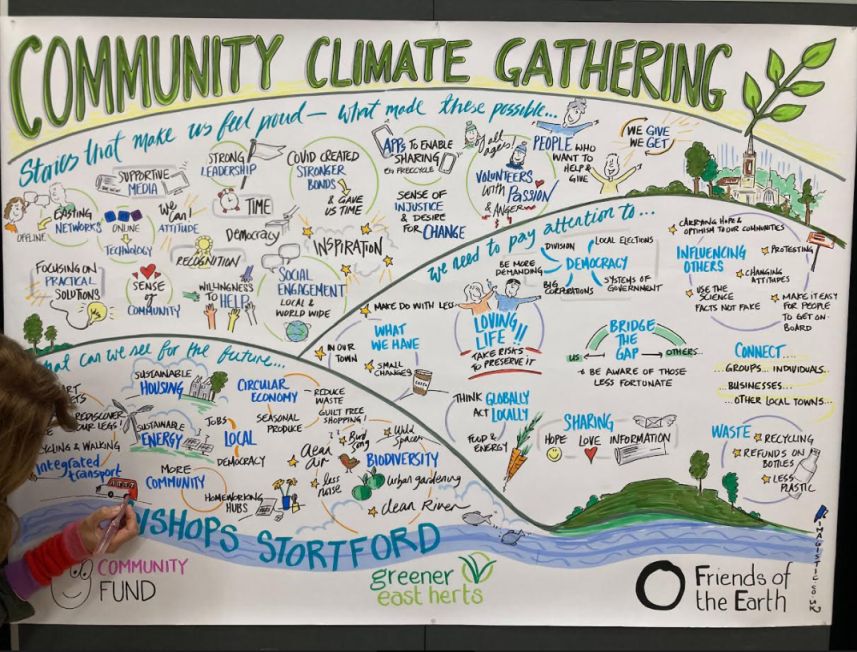 COMMUNITY CLIMATE GATHERING
Stories that make us feel proud — what made these possible...
SUPPORTIVE
MEDIA
STRONG
LEADERSHIP
COVID CREATED
STRONGER
BONDS
& GAVE
US TIME
APPS TO ENABLE
SHARING
EG FREECYCLE
of all
ages!
VOLUNTEERS
with PASSION
& ANGER
PEOPLE WHO
WANT TO
HELP &
GIVE
WE GIVE
WE GET
EXISTING
NETWORKS
OFFLINE
ONLINE
TECHNOLOGY
We
can!
ATTITUDE
TIME
Democracy
RECOGNITION
INSPIRATION
SENSE OF
INJUSTICE
& DESIRE
FOR CHANGE
FOCUSING ON
PRACTICAL
SOLUTIONS
SENSE
of
COMMUNITY
WILLINGNESS
TO HELP
SOCIAL
ENGAGEMENT
LOCAL &
WORLD WIDE
We need to pay attention to...
MAKE DO WITH LESS
WHAT
WE HAVE
IN OUR
TOWN
SMALL
CHANGES
DIVISION
LOCAL ELECTIONS
BE MORE
DEMANDING
DEMOCRACY
BIG
CORPORATIONS
SYSTEMS OF
GOVERNMENT
CARRYING HOPE &
OPTIMISM TO OUR COMMUNITIES
INFLUENCING
OTHERS
PROTESTING
CHANGING
ATTITUDES
USE THE
SCIENCE
FACTS NOT FAKE
MAKE IT EASY
FOR PEOPLE
TO GET ON-
BOARD
LOVING
LIFE!!
TAKE RISKS
TO PRESERVE IT
BRIDGE
THE
GAP
US
OTHERS
BE AWARE OF THOSE
LESS FORTUNATE
CONNECT....
...GROUPS... INDIVIDUALS..
...BUSINESSES...
...OTHER LOCAL TOWNS...
THINK GLOBALLY
ACT LOCALLY
FOOD &
ENERGY
SHARING
HOPE LOVE INFORMATION
WASTE
RECYCLING
REFUNDS ON
BOTTLES
LESS
PLASTIC
can we see for the future...
SUSTAINABLE
HOUSING
CIRCULAR
ECONOMY
REDUCE
WASTE
SEASONAL
PRODUCE
GUILT FREE
SHOPPING!
REDISCOVER
OUR LEGS!
SUSTAINABLE
ENERGY
JOBS
LOCAL
DEMOCRACY
& WALKING
Integrated
transport
MORE
COMMUNITY
HOMEWORKING
HUBS
clean
air
Bird
song
Wild
Spaces
BIODIVERSITY
less
noise
urban gardening
clean River
SHOPS STORTFORD
COMMUNITY
FUND
greener
east herts
Friends of
the Earth